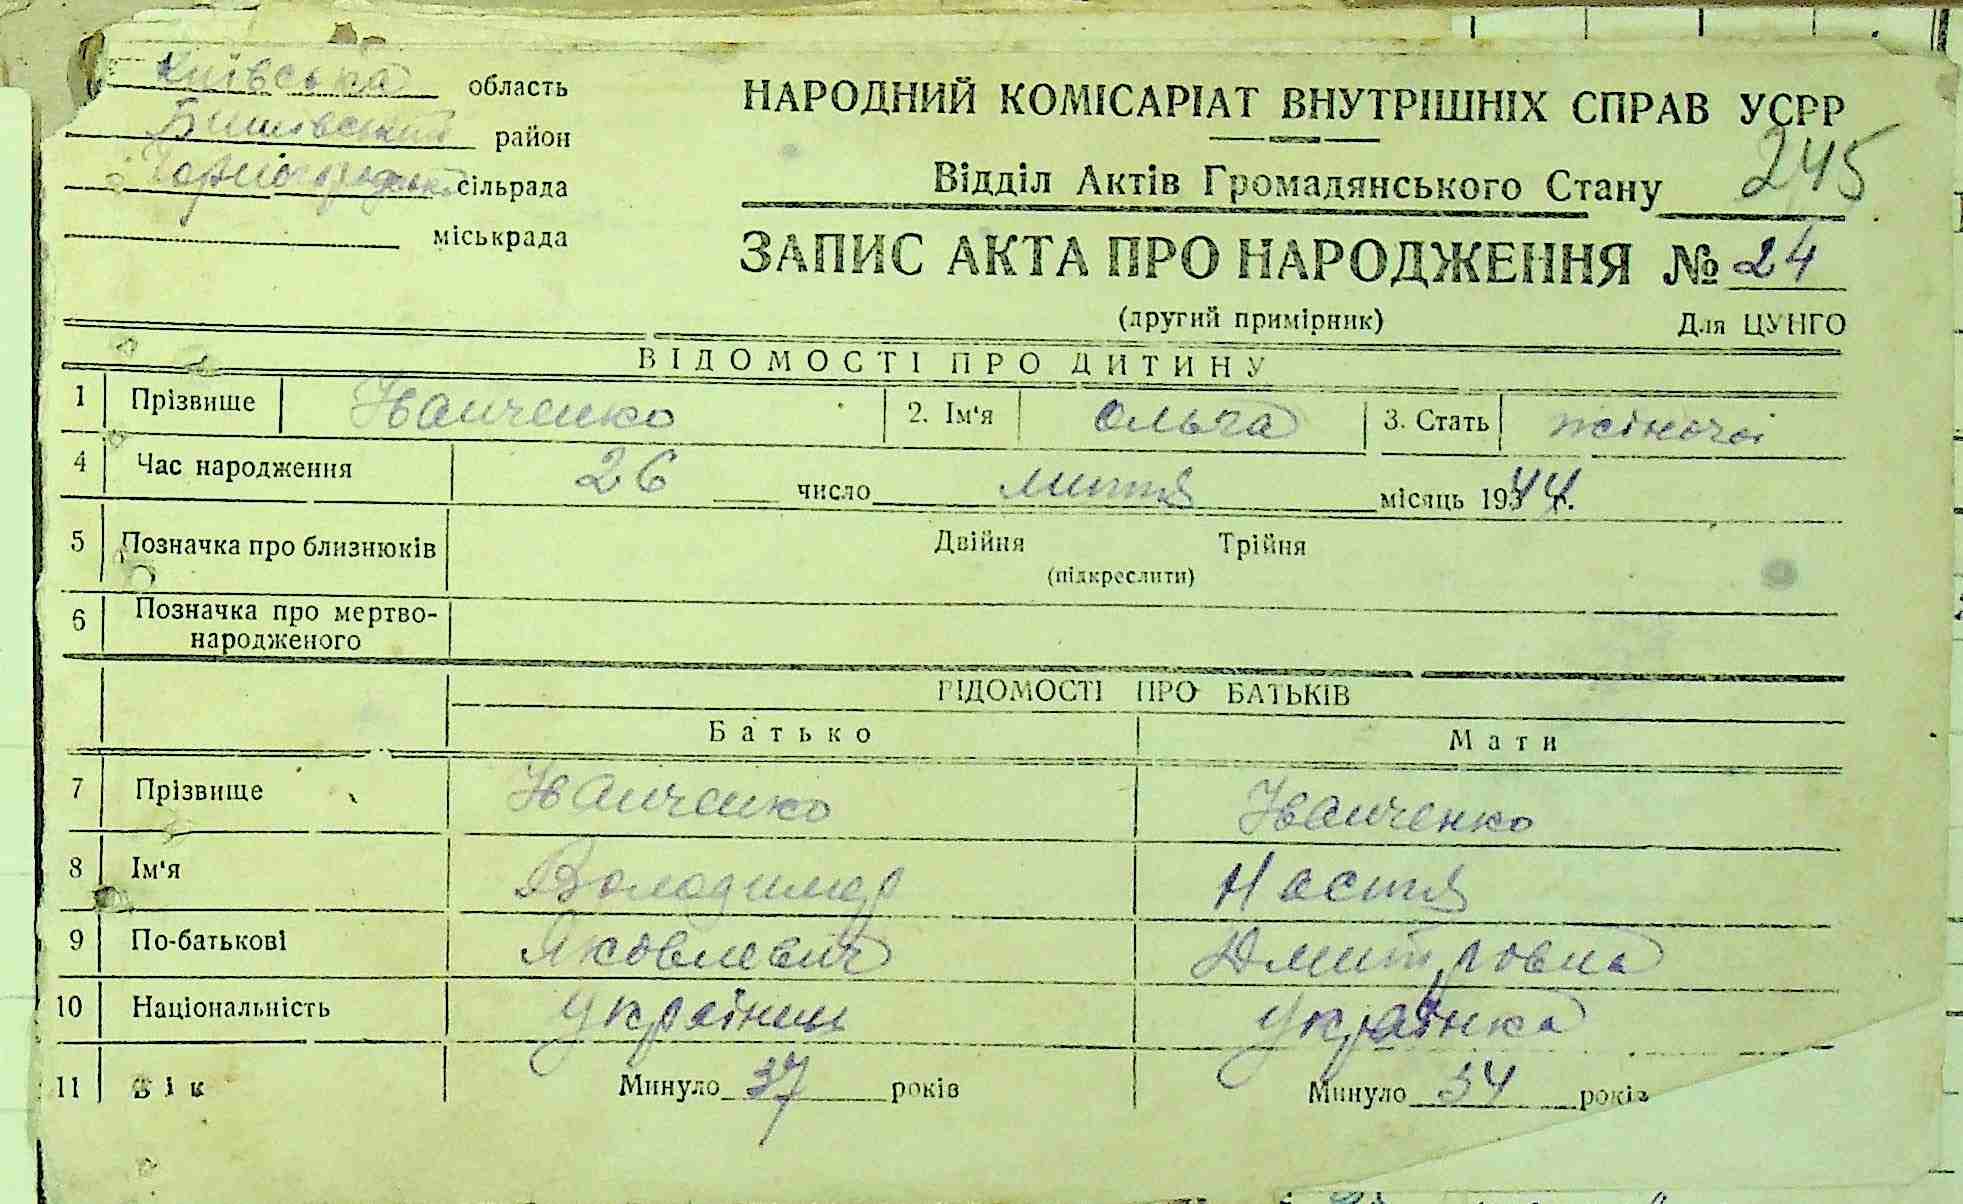 Київська область
Бишівський район
Чорногородська сільрада
міськрада
НАРОДНИЙ КОМІСАРІАТ ВНУТРІШНІХ СПРАВ УСРР
245
Відділ Актів Громадянського Стану
ЗАПИС АКТА ПРО НАРОДЖЕННЯ № 24
(другий примірник) Для ЦУНГО
ВІДОМОСТІ ПРО ДИТИНУ
1 Прізвище Іванченко 2. Ім'я Ольга 3. Стать жіночої
4 Час народження 26 число лютня місяць 1944 г.
5 Позначка про близнюків Двійня Трійня
(підкреслити)
6 Позначка про мертво-
народженого
ВІДОМОСТІ ПРО БАТЬКІВ
Батько Мати
7 Прізвище Іванченко Іванченко
8 Ім'я Володимер Настя
9 По-батькові Яковлевич Дмитровна
10 Національність українець українка
11 Вік Минуло 37 років Минуло 34 років